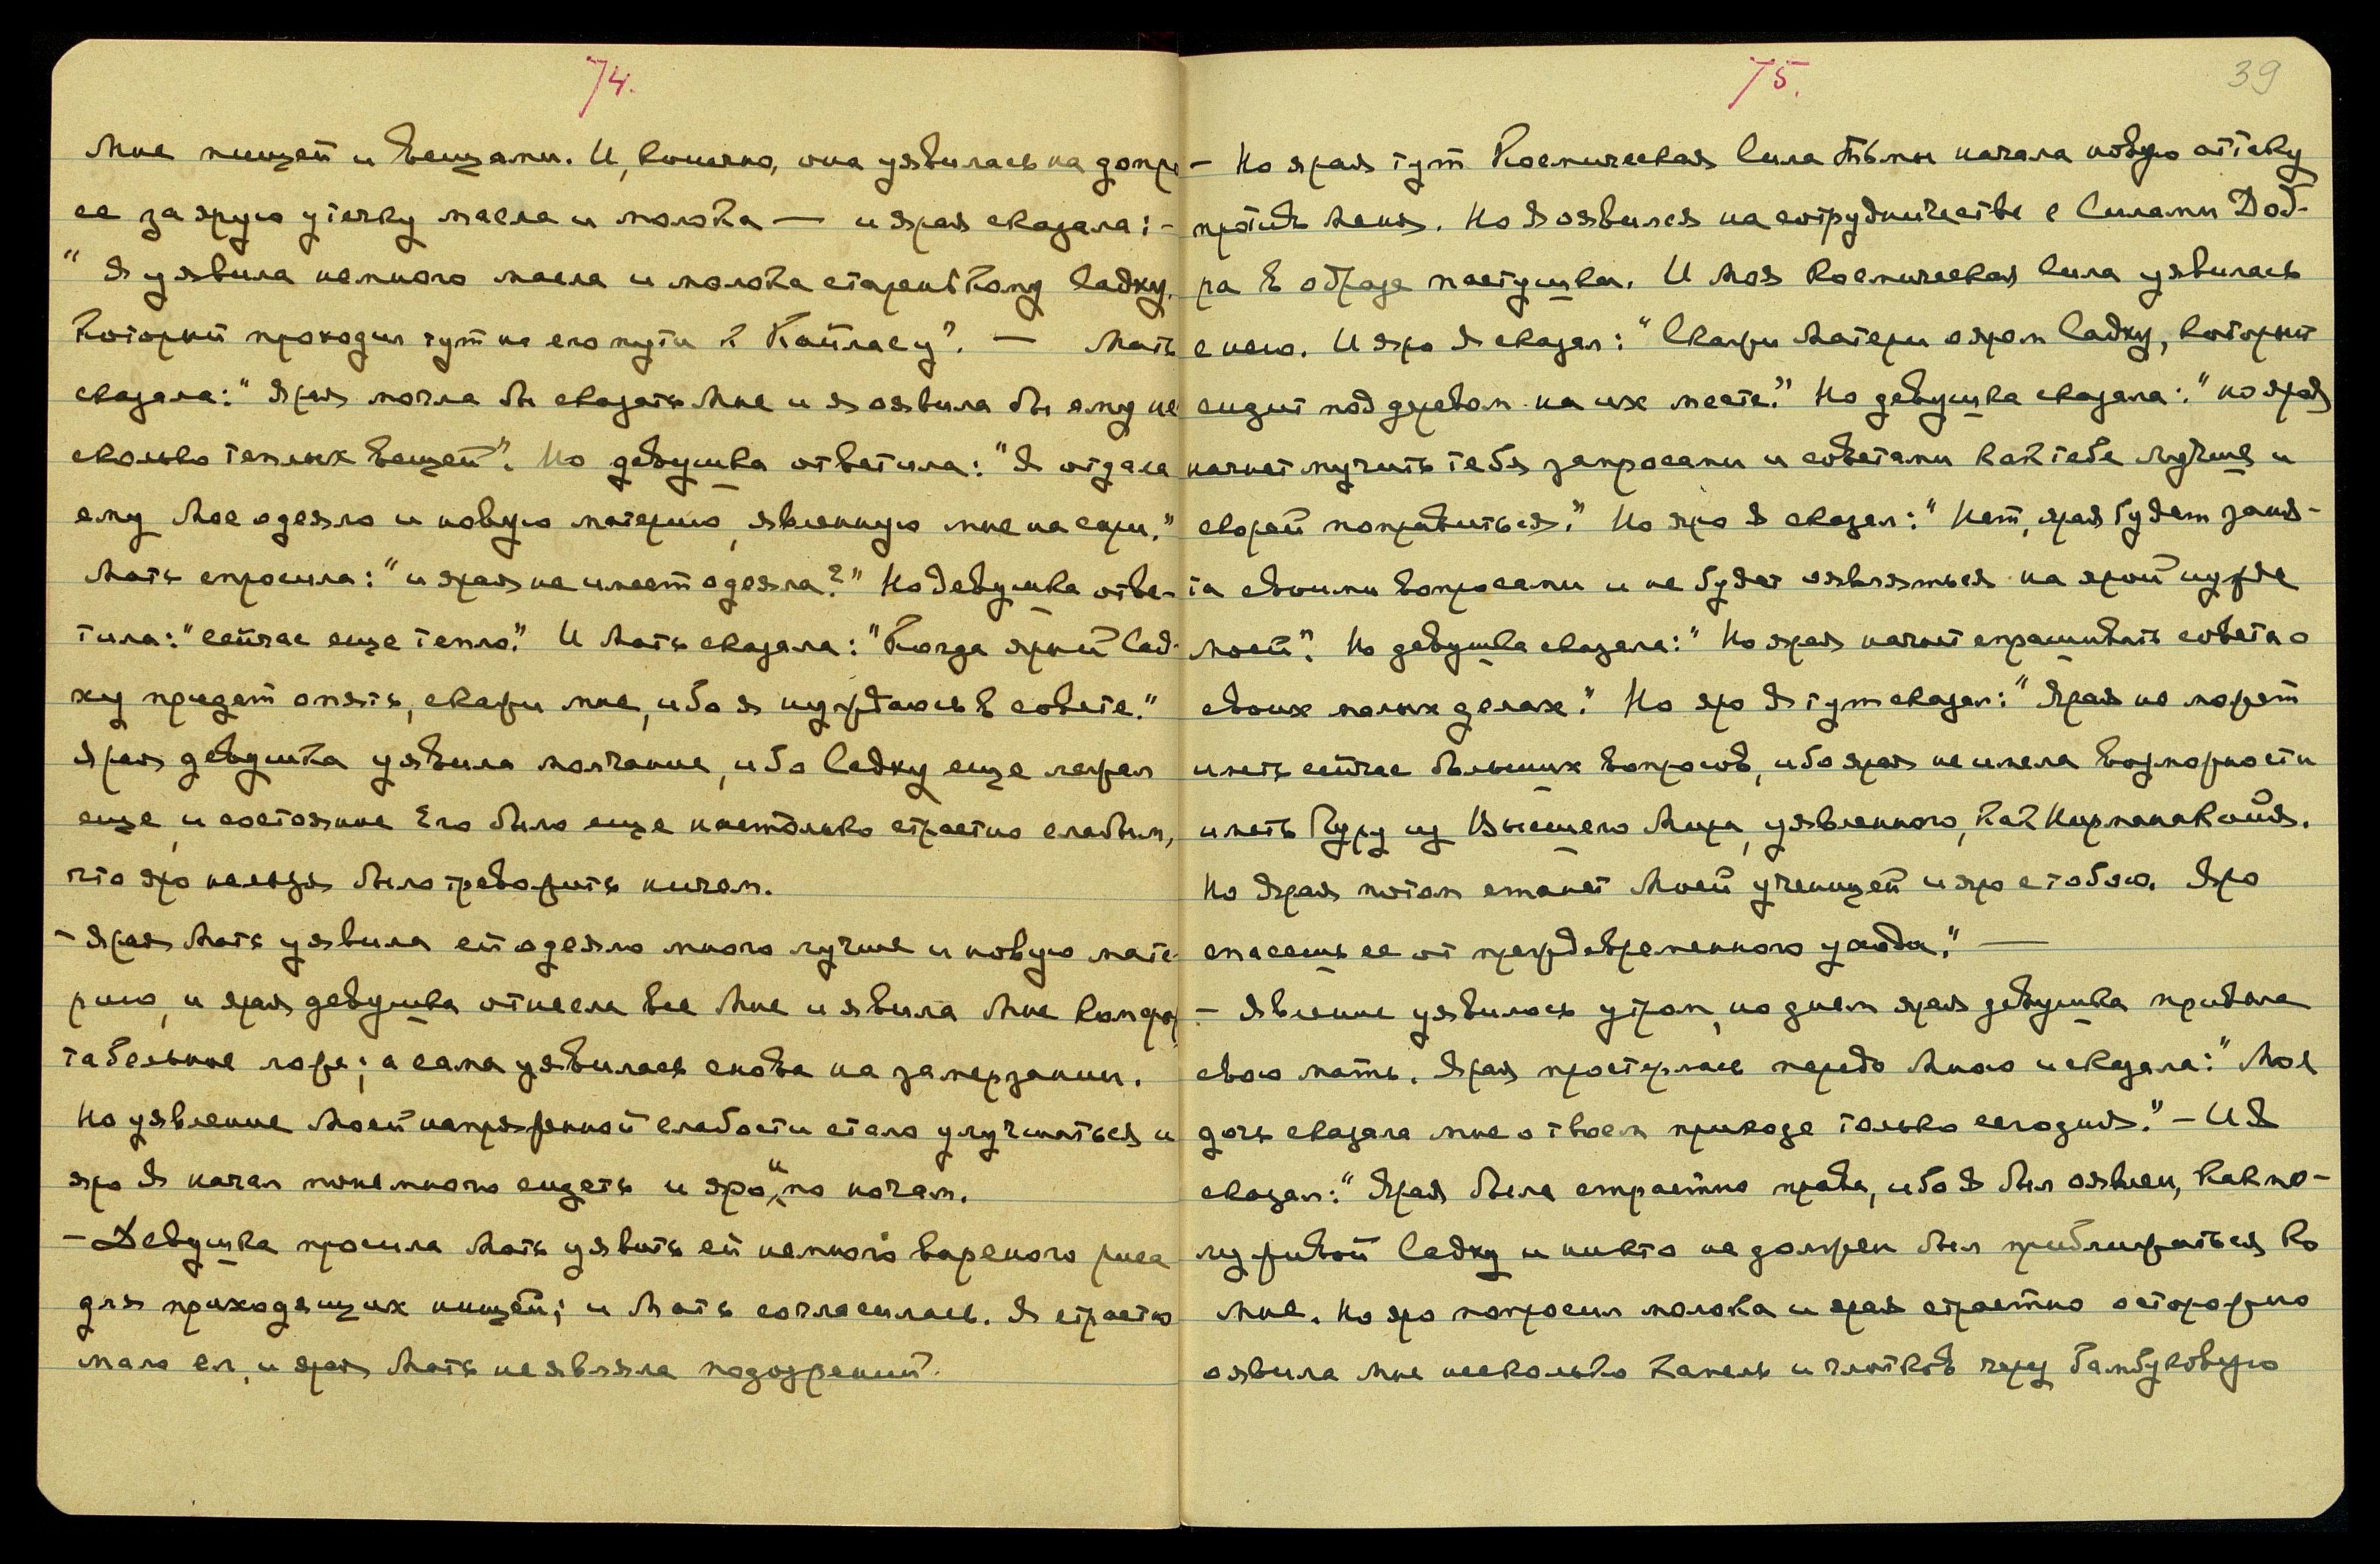 74.
Мне пищей и вещами. И, конечно, она уявилась на допро
ее за ярую утечку масла и молока — и ярая сказала: -
"Я уявила немного масла и молока старенькому Садху,
который проходил тут на его пути к Кайласу". — Мать
сказала: "Ярая могла бы сказать Мне и я оявила бы ему не
сколько теплых вещей". Но девушка ответила: "Я отдала
ему Мое одеяло и новую материю, явленную мне на сари."
Мать спросила: "и ярая не имеет одеяла?" Но девушка отве-
тила: "сейчас еще тепло". И Мать сказала: "Когда ярый Сад-
ху придет опять, скажи мне, ибо я нуждаюсь в совете."
Ярая девушка уявила молчание, ибо Садху еще лежал
еще, и состояние Его было еще настолько страстно слабым,
что яро нельзя было тревожить ничем.
- Ярая Мать уявила ей одеяло много лучше и новую мате-
рию, и ярая девушка отнесла все Мне и явила Мне комфор
табельное ложе; а сама уявилась снова на замерзании.
Но уявление Моей напряженной слабости стало улучшаться и
яро Я начал понемногу сидеть и яро "по ночам.
- Девушка просила Мать уявить ей немного вареного риса
для приходящих нищей; и Мать согласилась. Я страстно
мало ел, и ярая Мать не являла подозрений.
75.
39
- Но ярая тут Космическая Сила Тьмы начала новую отсевку
против Меня. Но Я оявился на сотрудничестве с Силами Доб-
ра в образе пастушки. И Моя Космическая Сила уявилась
с нею. И яро Я сказал: "Скажи Матери о яром Садху, который
сидит под деревом на их месте". Но девушка сказала: "но ярая
начнет мучить тебя запросами и советами как тебе лучше и
скорей поправиться." Но яро Я сказал: "Нет, ярая будет заня-
та своими вопросами и не будет являться на ярой нужде
Моей". Но девушка сказала: "Но ярая начнет спрашивать совета о
своих малых делах". Но яро Я тут сказал: "Ярая не может
иметь сейчас больших вопросов, ибо ярая не имела возможности
иметь Гуру из Высшего Мира, уявленного, как Нирманакайя.
Но Ярая потом станет Моей ученицей и яро с тобою. Яро
спасешь ее от преждевременного ухода." —
- Явление уявилось утром, но днем ярая девушка привела
свою мать. Ярая простерлась передо Мною и сказала: "Моя
дочь сказала мне о твоем приходе только сегодня." - И Я
сказал: "Ярая была страстно права, ибо Я был оявлен, как по-
луживой Садху и никто не должен был приближаться ко
Мне. Но яро попросил молока и ярая страстно осторожно
оявила Мне несколько капель и глотков через бамбуковую